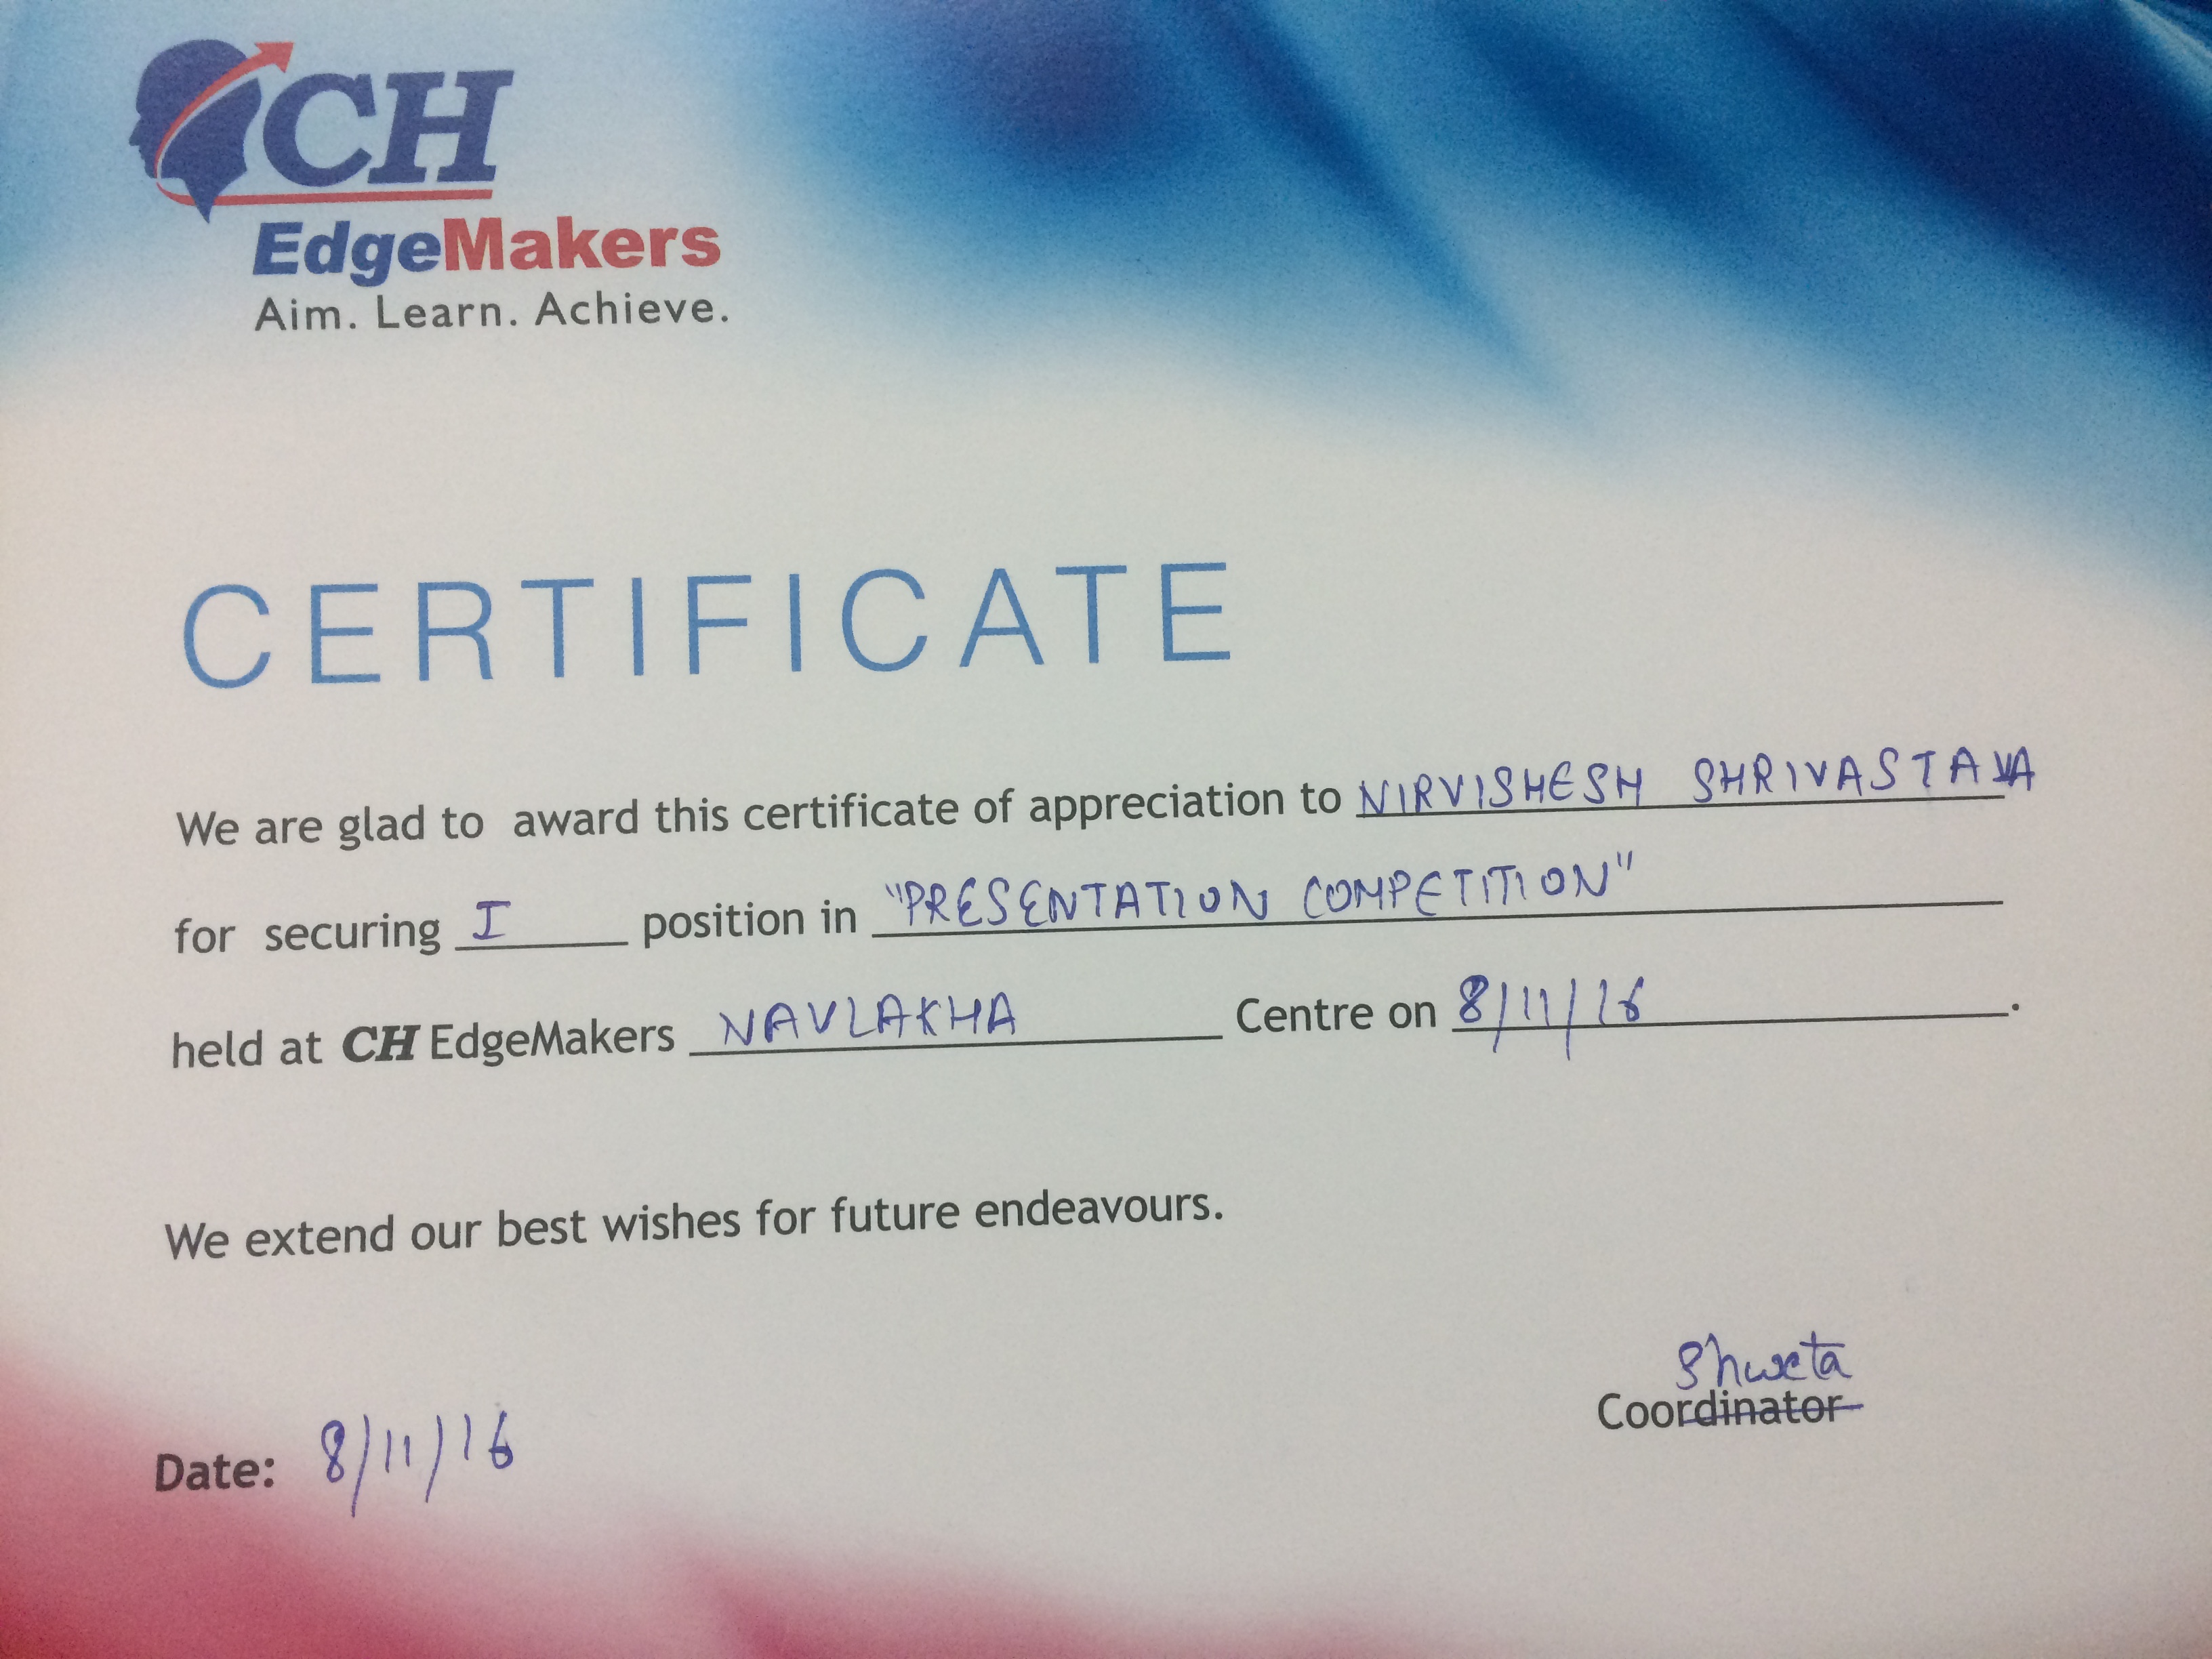 CH
EdgeMakers
Aim. Learn. Achieve.
CERTIFICATE
We are glad to award this certificate of appreciation to NIRVISHESH SHRIVASTAVA
for securing I position in "PRESENTATION COMPETITION"
held at CH EdgeMakers NAVLAKHA Centre on 8/11/16.
We extend our best wishes for future endeavours.
Shweta
Coordinator
Date: 8/11/16